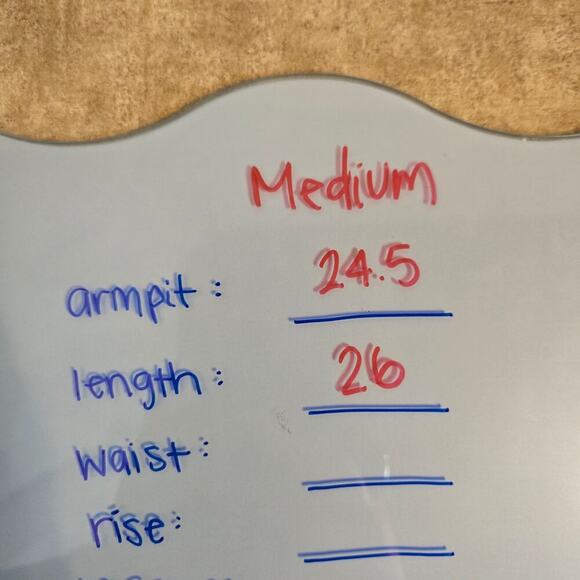 Medium
armpit: 24.5
length: 26
waist:
rise: